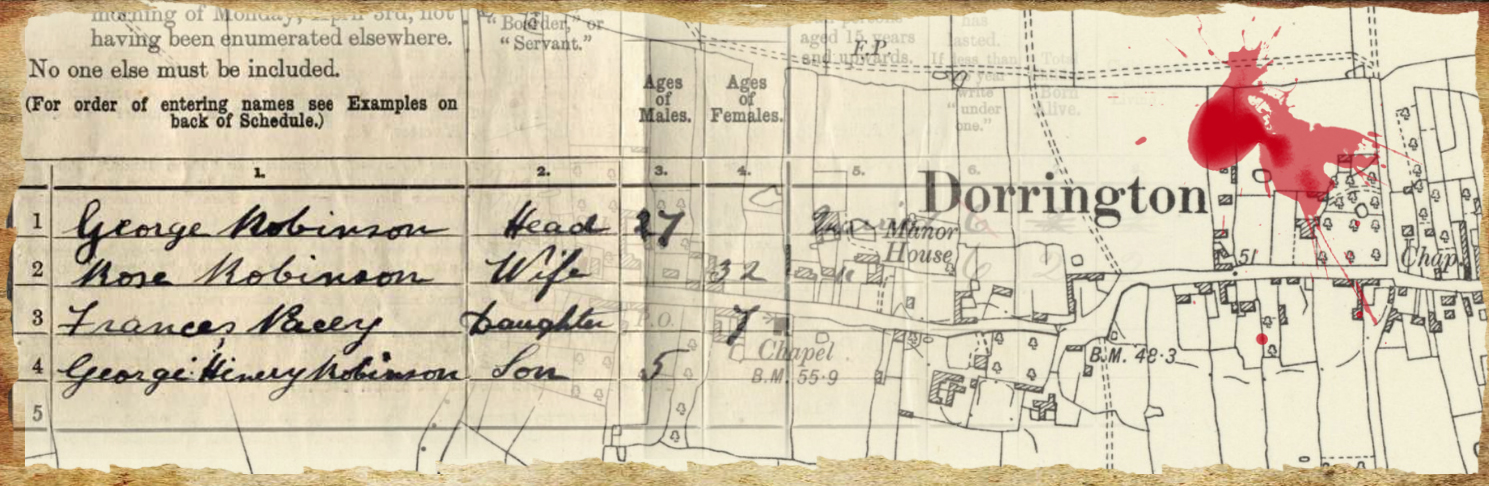 morning of Monday, April 3rd, not
having been enumerated elsewhere.
No one else must be included.
(For order of entering names see Examples on
back of Schedule.)
"Boarder," or
"Servant."
Ages
of
Males.
Ages
of
Females.
persons
aged 15 years
and upwards.
has
lasted.
If less than
year
write
"under
one."
Born
Alive.
F.P.
1. 2. 3. 4. 5. 6.
1 George Robinson Head 27
2 Rose Robinson Wife 32
3 Frances Pacey Daughter 7
4 George Henery Robinson Son 5
5
Dorrington
Manor
House
51
Chap
P.O.
Chapel
B.M. 55·9
B.M. 48·3